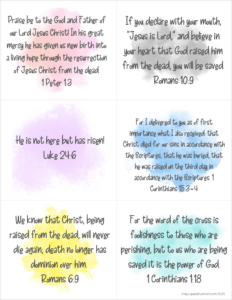 Praise be to the God and Father of
our Lord Jesus Christ! In his great
mercy he has given us new birth into
a living hope through the resurrection
of Jesus Christ from the dead.
1 Peter 1:3
If you declare with your mouth,
"Jesus is Lord," and believe in
your heart that God raised him
from the dead, you will be saved.
Romans 10:9
He is not here but has risen!
Luke 24:6
For I delivered to you as of first
importance what I also received: that
Christ died for our sins in accordance with
the Scriptures, that he was buried, that
he was raised on the third day in
accordance with the Scriptures 1
Corinthians 15:3-4
We know that Christ, being
raised from the dead, will never
die again; death no longer has
dominion over him.
Romans 6:9
For the word of the cross is
foolishness to those who are
perishing, but to us who are being
saved it is the power of God.
1 Corinthians 1:18